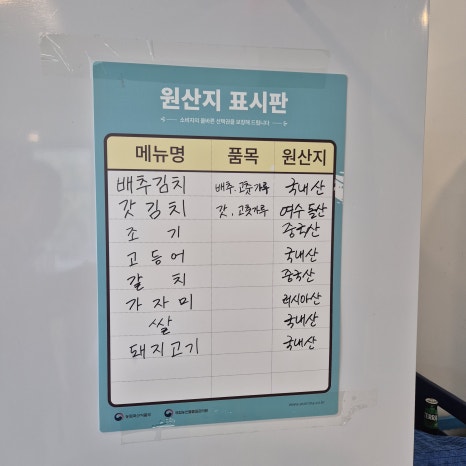 원산지 표시판
소비자의 올바른 선택권을 보장해 드립니다
메뉴명 품목 원산지
배추김치 배추, 고춧가루 국내산
갓김치 갓, 고춧가루 여수 돌산
조기 중국산
고등어 국내산
갈치 중국산
가자미 러시아산
쌀 국내산
돼지고기 국내산